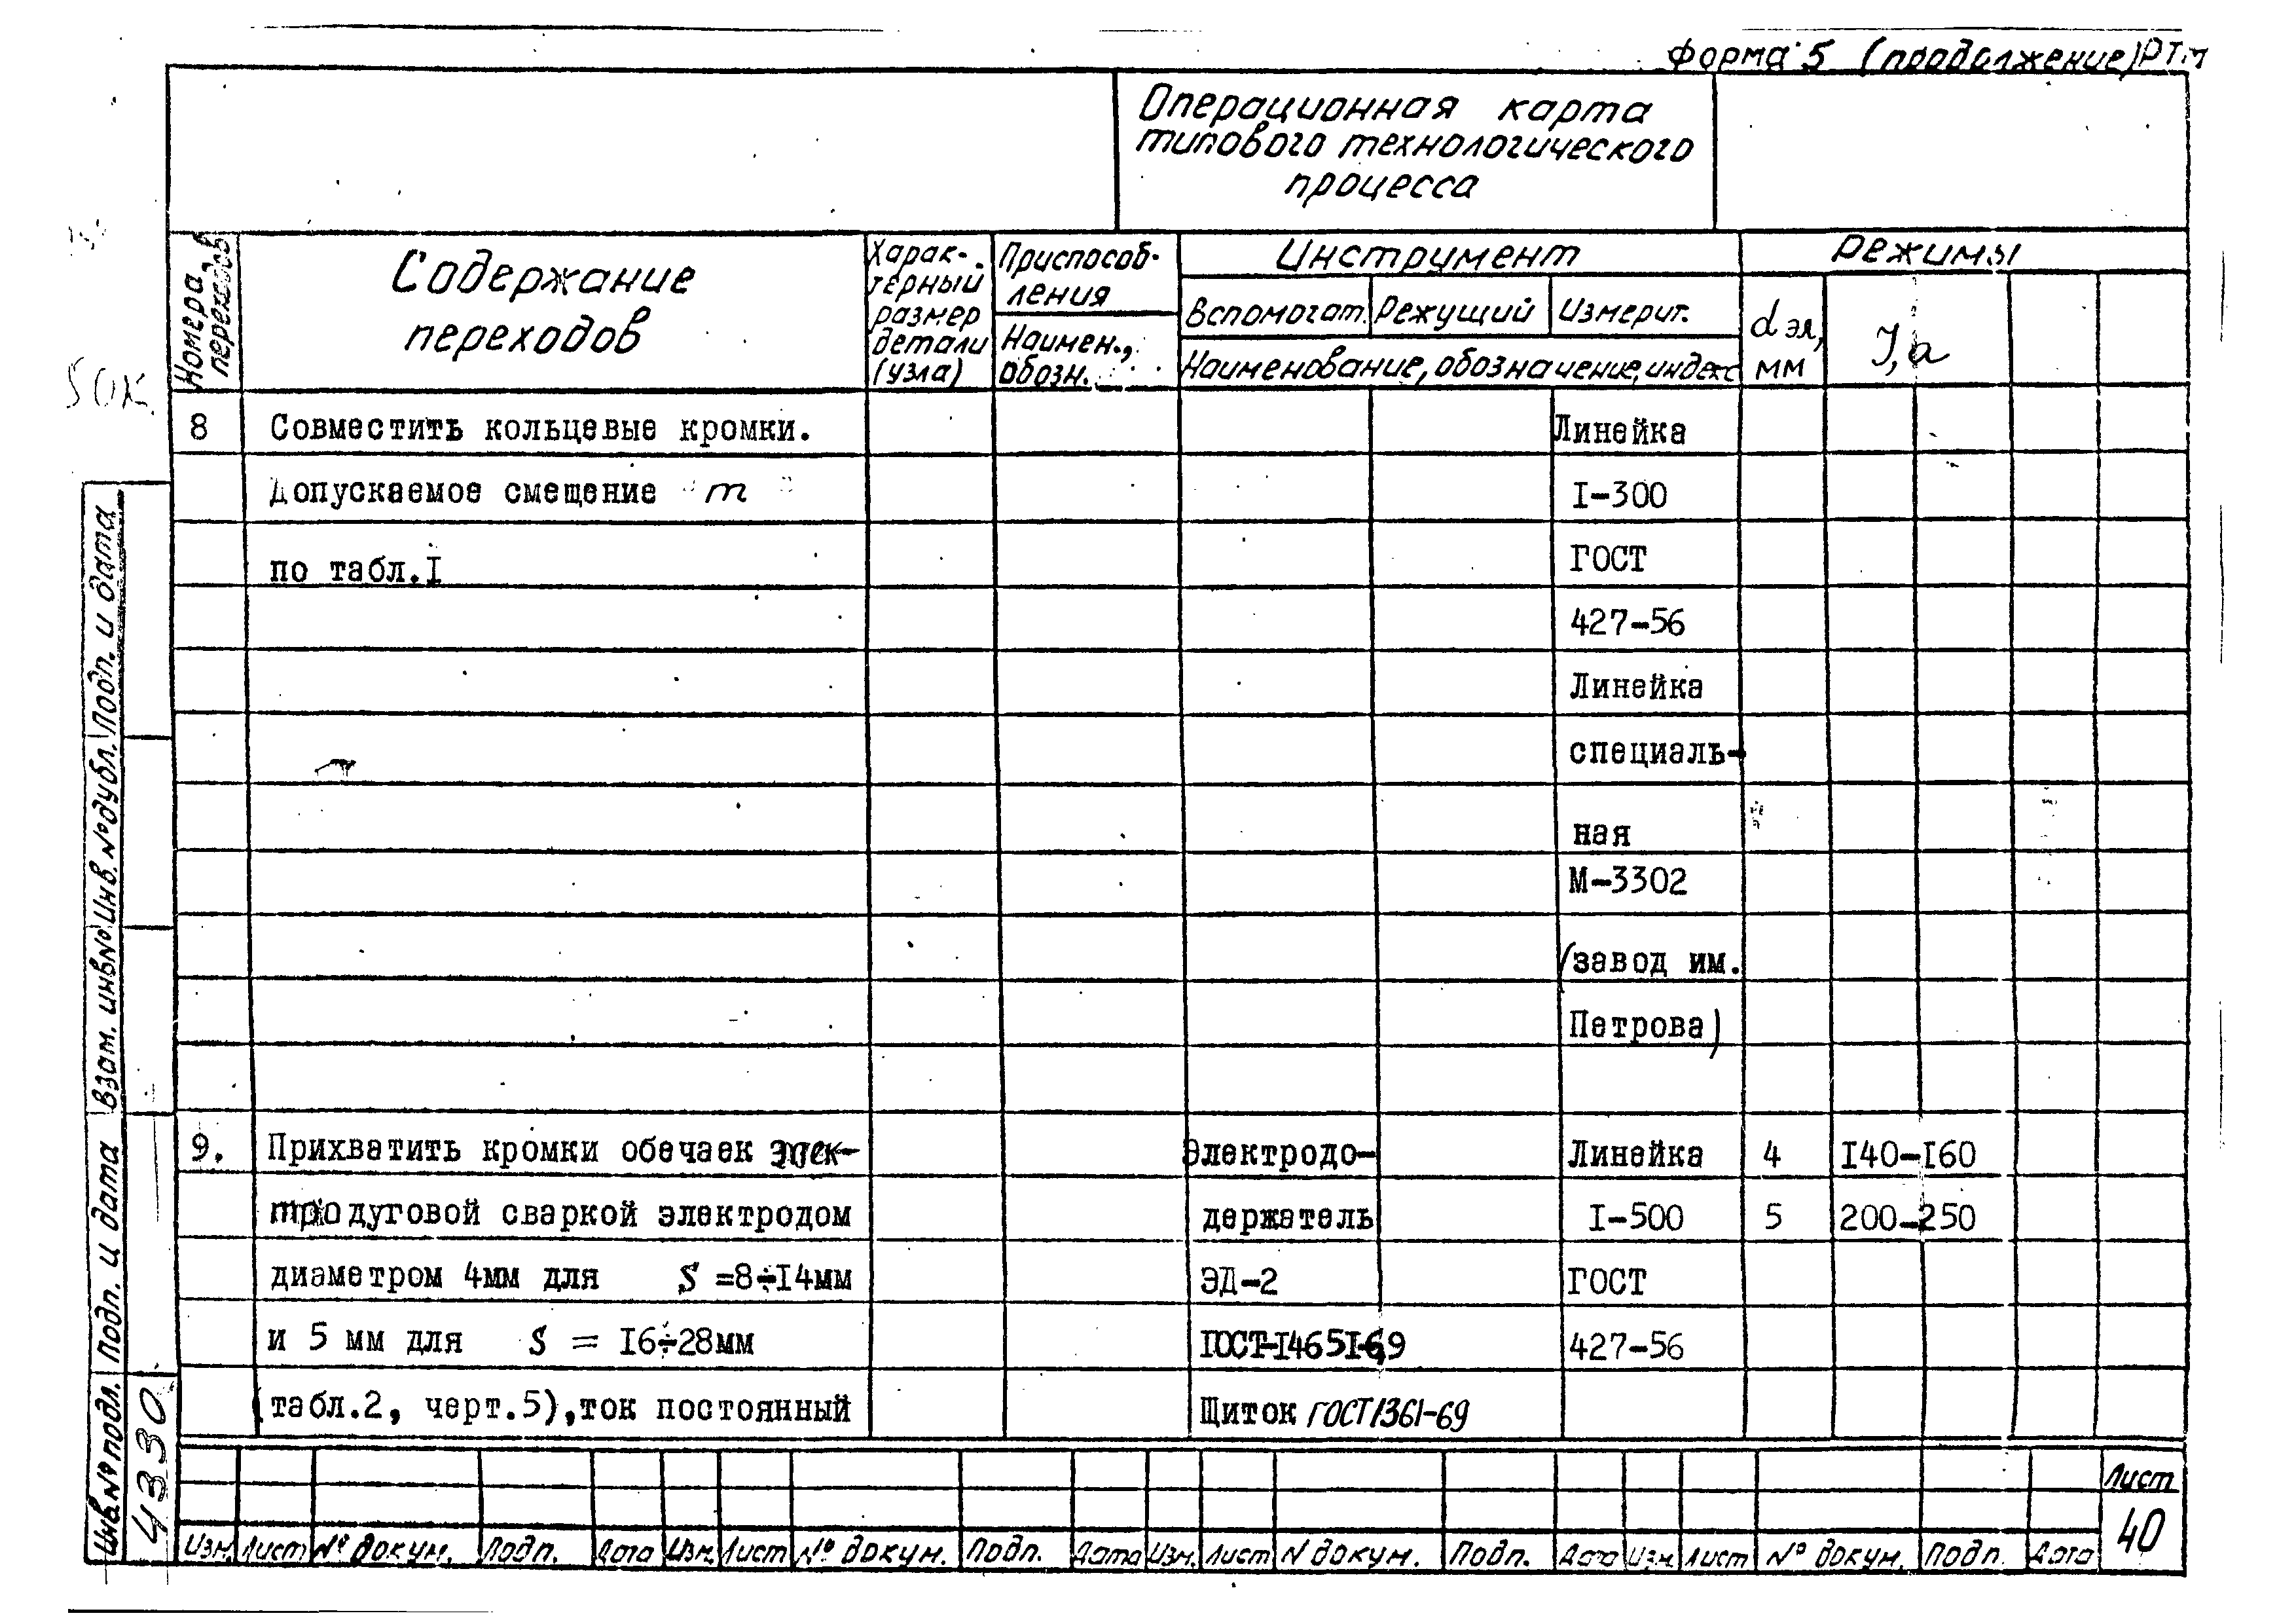 Форма 5 (продолжение) РТМ
Операционная карта
типового технологического
процесса
Номера
переходов
Содержание
переходов
Харак-
терный
размер
детали
(узла)
Приспособ-
ления
Наимен.,
обозн.
Инструмент
Вспомогат.
Режущий
Измерит.
Наименование, обозначение, индекс
Режимы
d эл,
мм
J, а
8
Совместить кольцевые кромки.
Допускаемое смещение "m"
по табл.I
Линейка
I-300
ГОСТ
427-56
Линейка
специаль-
ная
М-3302
(завод им.
Петрова)
9.
Прихватить кромки обечаек элек-
тродуговой сваркой электродом
диаметром 4мм для S =8÷I4мм
и 5 мм для S = I6÷28мм
(табл.2, черт.5), ток постоянный
Электродо-
держатель
ЭД-2
ГОСТ-I465I-69
Щиток ГОСТ 1361-69
Линейка
I-500
ГОСТ
427-56
4
5
I40-I60
200-250
Подп. и дата
Инв. № дубл.
Взам. инв №
Подп. и дата
Инв № подл.
4330
Изм. Лист № докум. Подп. Дата Изм. Лист № докум. Подп. Дата Изм. Лист N докум. Подп. Дата Изм. Лист № докум. Подп. Дата
Лист
40